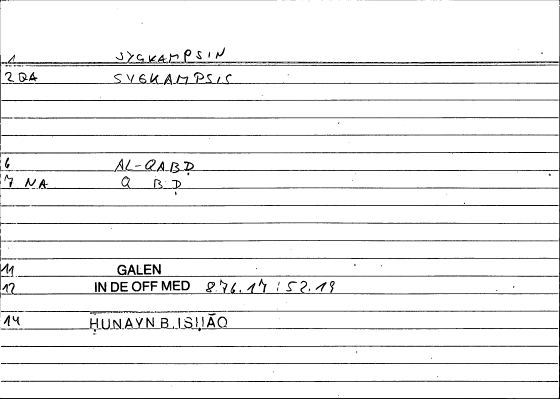 1 SYGKAMPSIN
2 QA SYGKAMPSIS
6 AL-QABḌ
7 NA Q B Ḍ
11 GALEN
12 IN DE OFF MED 8.76.17 : 52.19
14 ḤUNAYN B. ISḤĀQ